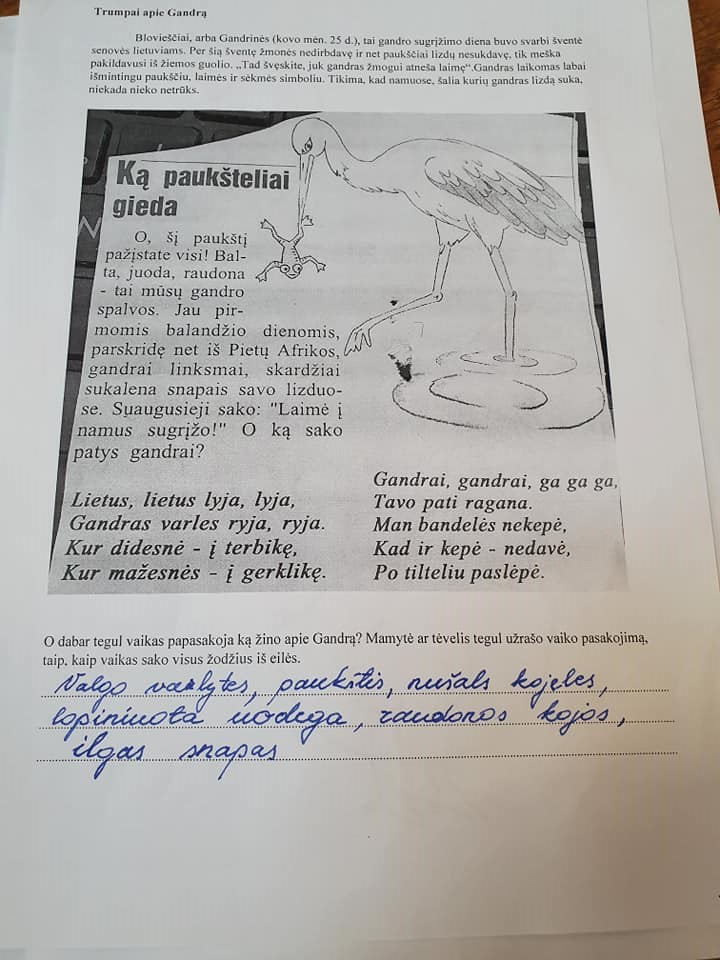 Trumpai apie Gandrą
Blovieščiai, arba Gandrinės (kovo mėn. 25 d.), tai gandro sugrįžimo diena buvo svarbi šventė
senovės lietuviams. Per šią šventę žmonės nedirbdavę ir net paukščiai lizdų nesukdavę, tik meška
pakildavusi iš žiemos guolio. „Tad švęskite, juk gandras žmogui atneša laimę“.Gandras laikomas labai
išmintingu paukščiu, laimės ir sėkmės simboliu. Tikima, kad namuose, šalia kurių gandras lizdą suka,
niekada nieko netrūks.
Ką paukšteliai
gieda
O, šį paukštį
pažįstate visi! Bal-
ta, juoda, raudona
- tai mūsų gandro
spalvos. Jau pir-
momis balandžio dienomis,
parskridę net iš Pietų Afrikos,
gandrai linksmai, skardžiai
sukalena snapais savo lizduo-
se. Suaugusieji sako: "Laimė į
namus sugrįžo!" O ką sako
patys gandrai?
Lietus, lietus lyja, lyja,
Gandras varles ryja, ryja.
Kur didesnė - į terbikę,
Kur mažesnės - į gerklikę.
Gandrai, gandrai, ga ga ga,
Tavo pati ragana.
Man bandelės nekepė,
Kad ir kepė - nedavė,
Po tilteliu paslėpė.
O dabar tegul vaikas papasakoja ką žino apie Gandrą? Mamytė ar tėvelis tegul užrašo vaiko pasakojimą,
taip, kaip vaikas sako visus žodžius iš eilės.
Valgo varlytes, paukštis, nušals kojeles,
lopiniuota uodega, raudonos kojos,
ilgas snapas